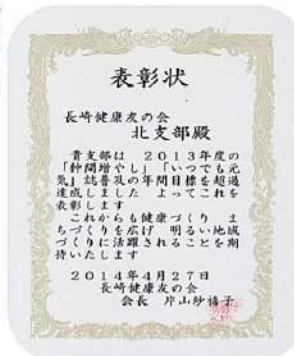 表彰状
長崎健康友の会
北支部殿
貴支部は 2013年度の
「仲間増やし」「いつでも元
気」誌普及の年間目標を超過
達成しました よってこれを
表彰します
これからも健康づくり ま
ちづくりを広げ 明るい地域
づくりに活躍されることを期
待いたします
2014年4月27日
長崎健康友の会
会長 片山紗禧子